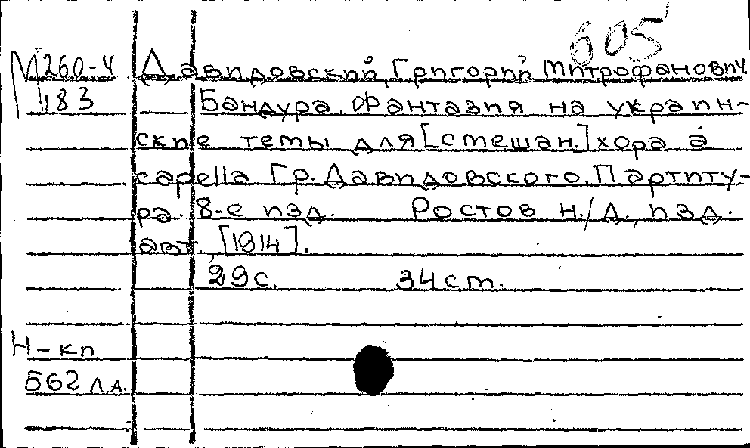 605
М 260-4 Давидовский, Григорий Митрофанович
183 Бандура. Фантазия на украин-
ские темы для [смешан.] хора a
capella Гр. Давидовского. Партиту-
ра. 8-е изд. Ростов н./Д., изд.
авт., [1914].
29 с. 34 см.
Н-кп
562 л.д.